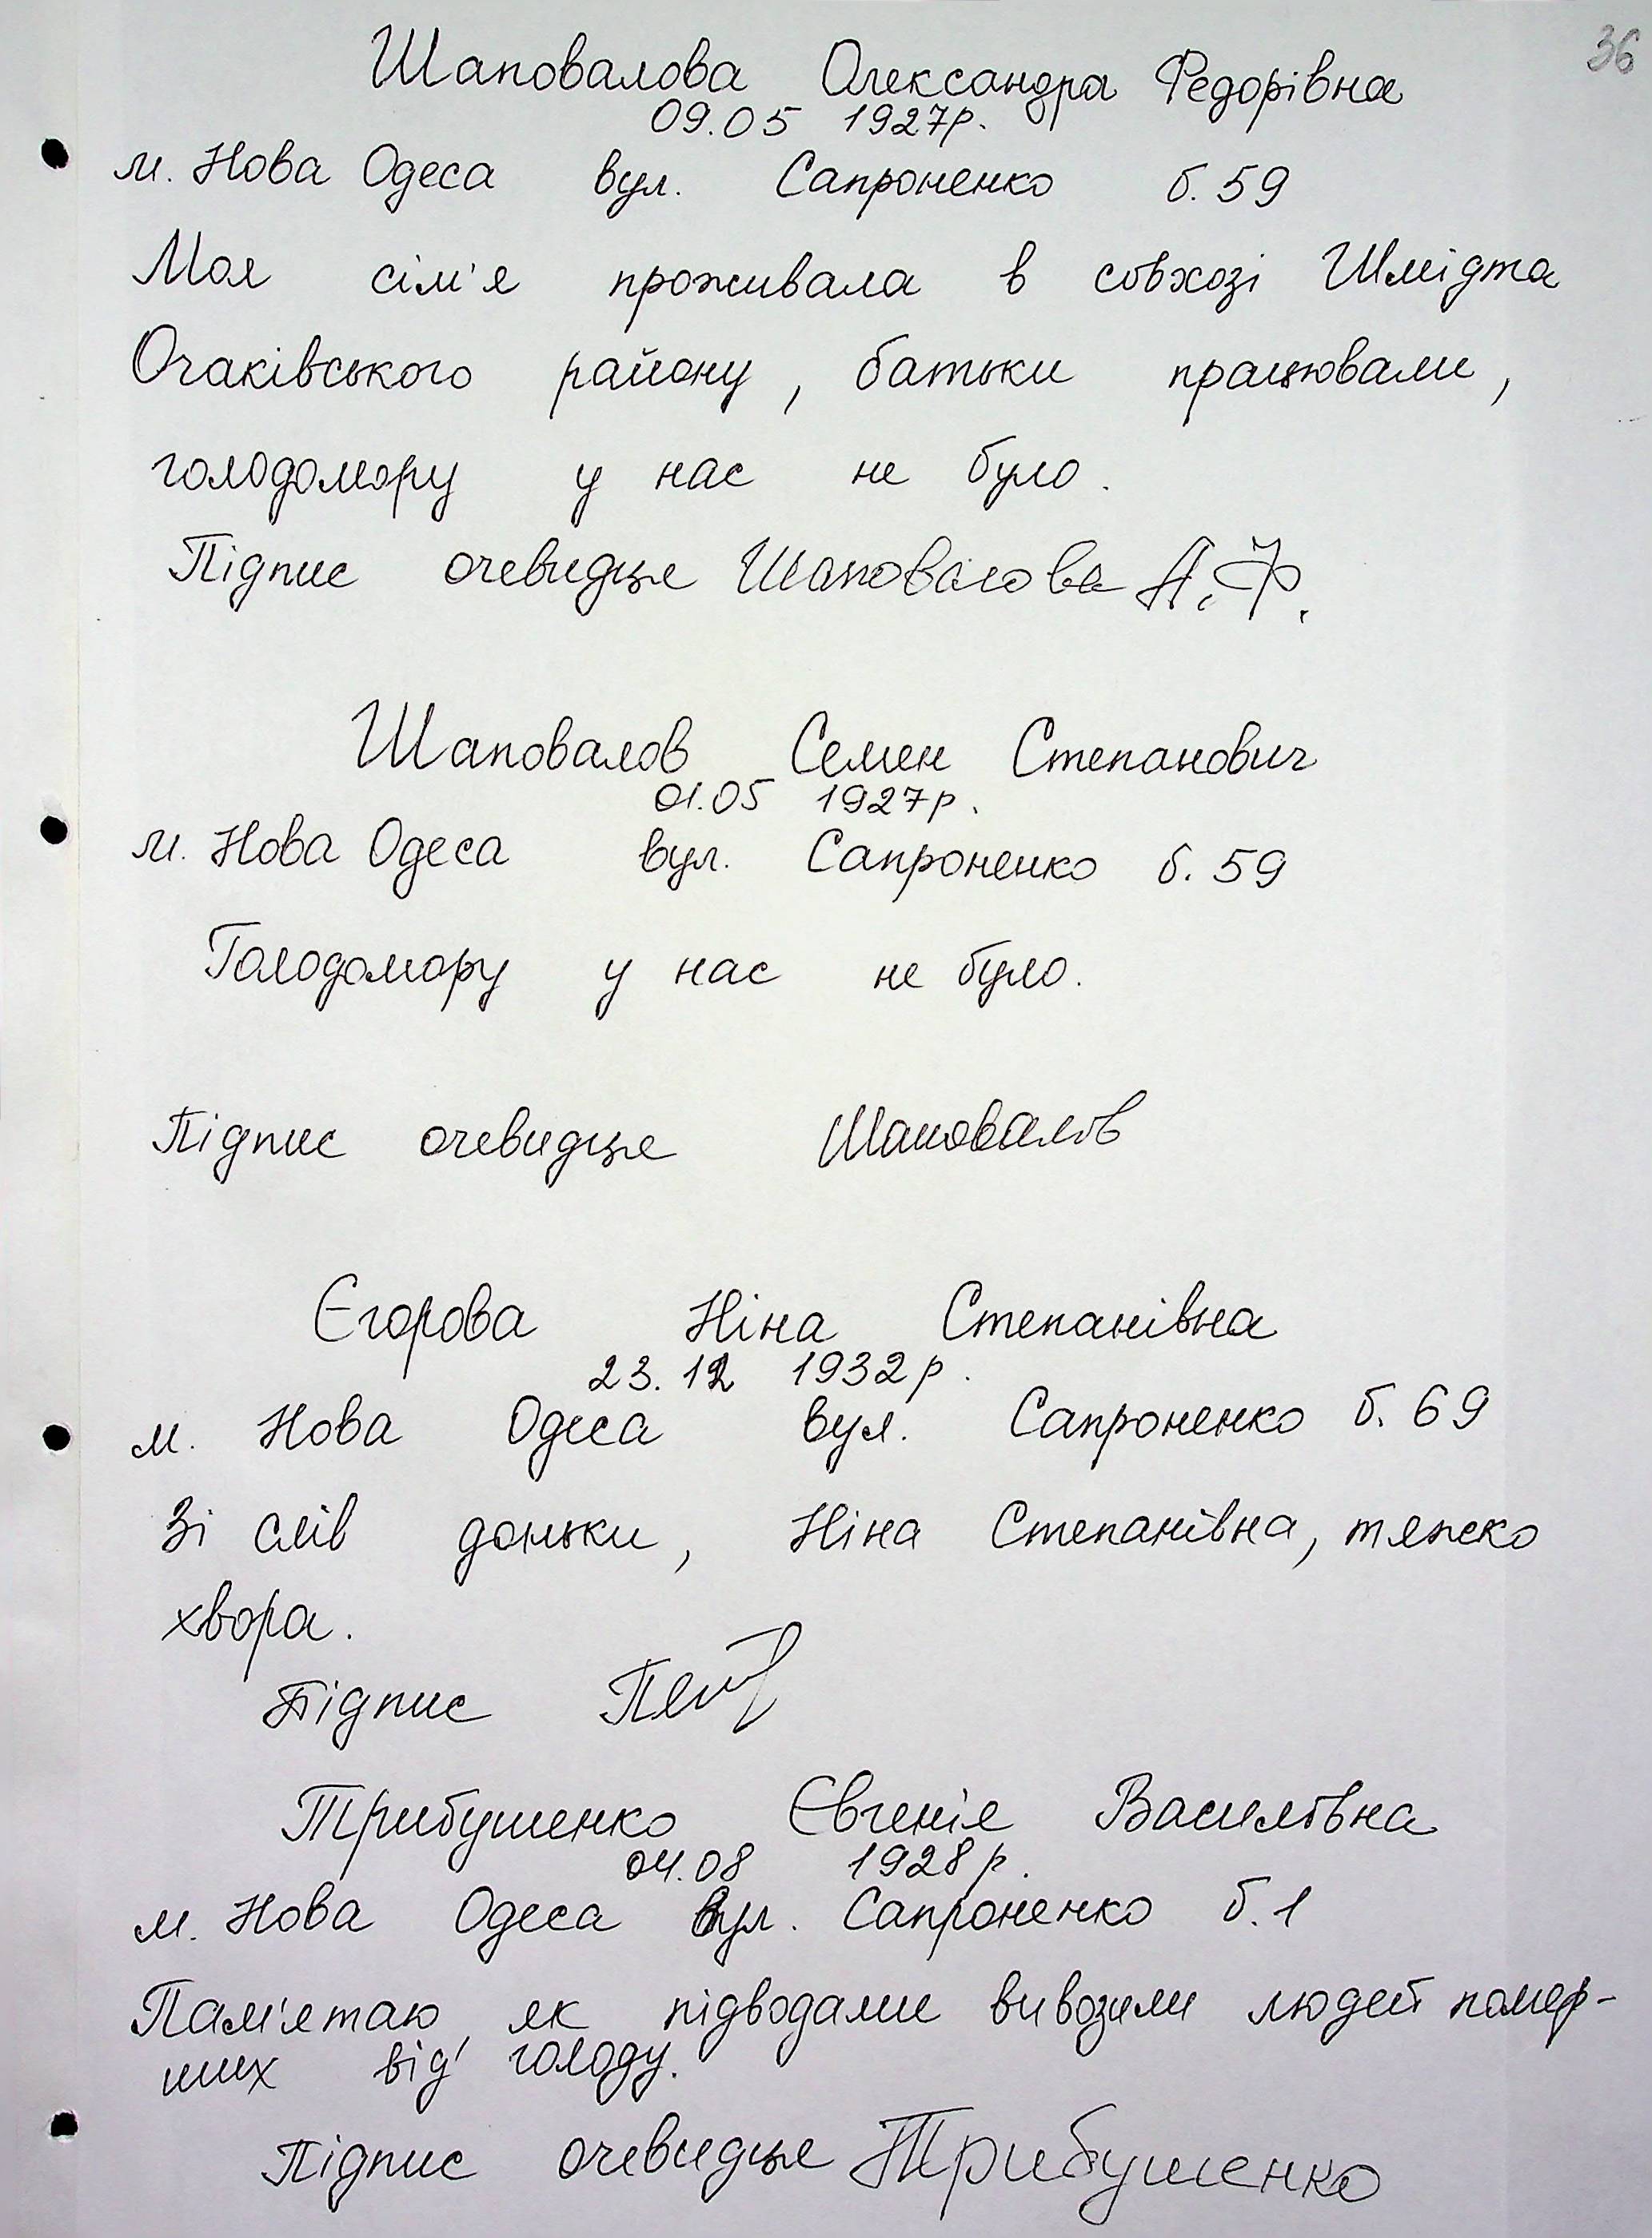 36
Шаповалова Олександра Федорівна
09.05 1927р.
м. Нова Одеса вул. Сапроненко б. 59
Моя сім'я проживала в совхозі Шмідта
Очаківського району, батьки працювали,
голодомору у нас не було.
Підпис очевидця Шаповалова А.Ф.
Шаповалов Семен Степанович
01.05 1927р.
м. Нова Одеса вул. Сапроненко б. 59
Голодомору у нас не було.
Підпис очевидця Шаповалов
Єгорова Ніна Степанівна
23.12 1932р.
м. Нова Одеса вул. Сапроненко б. 69
Зі слів доньки, Ніна Степанівна, тяжко
хвора.
Підпис
Трибушенко Євгенія Василівна
04.08 1928р.
м. Нова Одеса вул. Сапроненко б. 1
Пам'ятаю як підводами вивозили людей помер-
ших від голоду.
Підпис очевидця Трибушенко